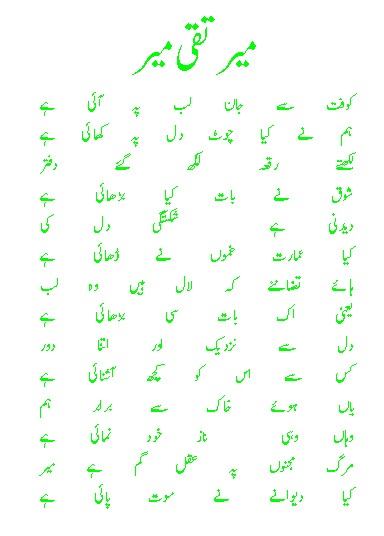 میر تقی میر
کوفت سے جان لب پہ آئی ہے
ہم نے کیا چوٹ دل پہ کھائی ہے
لکھتے رقعہ لکھ گئے دفتر
شوق نے بات کیا بڑھائی ہے
دیدنی ہے شکستگی دل کی
کیا عمارت غموں نے ڈھائی ہے
ہائے کہ لال ہیں وہ لب
یعنی اک بات سی بڑھائی ہے
دل سے نزدیک اور اتنا دور
کس سے اس کو کچھ آشنائی ہے
یاں ہوئے خاک سے برابر ہم
وہاں وہی ناز خود نمائی ہے
مرگ مجنوں پہ عقل گم ہے میر
کیا دیوانے نے موت پائی ہے